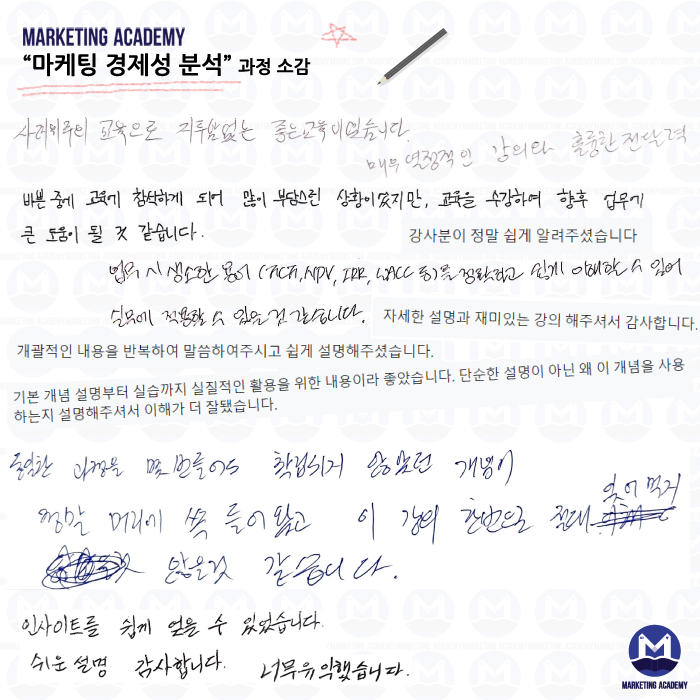 MARKETING ACADEMY
“마케팅 경제성 분석” 과정 소감
사례위주의 교육으로 지루함없는 좋은교육이었습니다.
매우 열정적인 강의와 훌륭한 전달력
바쁜 중에 교육에 참석하게 되어 많이 부담스런 상황이었지만, 교육을 수강하여 향후 업무에
큰 도움이 될 것 같습니다.
강사분이 정말 쉽게 알려주셨습니다
업무 시 생소한 용어 (FCF, NPV, IRR, WACC 등)를 정확하고 쉽게 이해할 수 있어
실무에 적용할 수 있을 것 같습니다.
자세한 설명과 재미있는 강의 해주셔서 감사합니다.
개괄적인 내용을 반복하여 말씀하여주시고 쉽게 설명해주셨습니다.
기본 개념 설명부터 실습까지 실질적인 활용을 위한 내용이라 좋았습니다. 단순한 설명이 아닌 왜 이 개념을 사용
하는지 설명해주셔서 이해가 더 잘됐습니다.
동일한 과정을 몇 번 들어도 확립되지 않았던 개념이
정말 머리에 쏙 들어왔고 이 강의 한번으로 절대 잊어 먹지
않을것 같습니다.
인사이트를 쉽게 얻을 수 있었습니다.
쉬운 설명 감사합니다. 너무 유익했습니다.
MARKETING ACADEMY